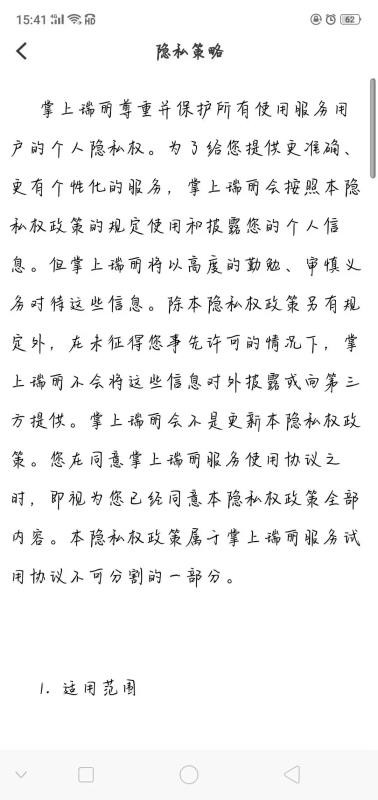 15:41
62
隐私策略
掌上瑞丽尊重并保护所有使用服务用
户的个人隐私权。为了给您提供更准确、
更有个性化的服务，掌上瑞丽会按照本隐
私权政策的规定使用和披露您的个人信
息。但掌上瑞丽将以高度的勤勉、审慎义
务对待这些信息。除本隐私权政策另有规
定外，在未征得您事先许可的情况下，掌
上瑞丽不会将这些信息对外披露或向第三
方提供。掌上瑞丽会不是更新本隐私权政
策。您在同意掌上瑞丽服务使用协议之
时，即视为您已经同意本隐私权政策全部
内容。本隐私权政策属于掌上瑞丽服务试
用协议不可分割的一部分。
1. 适用范围